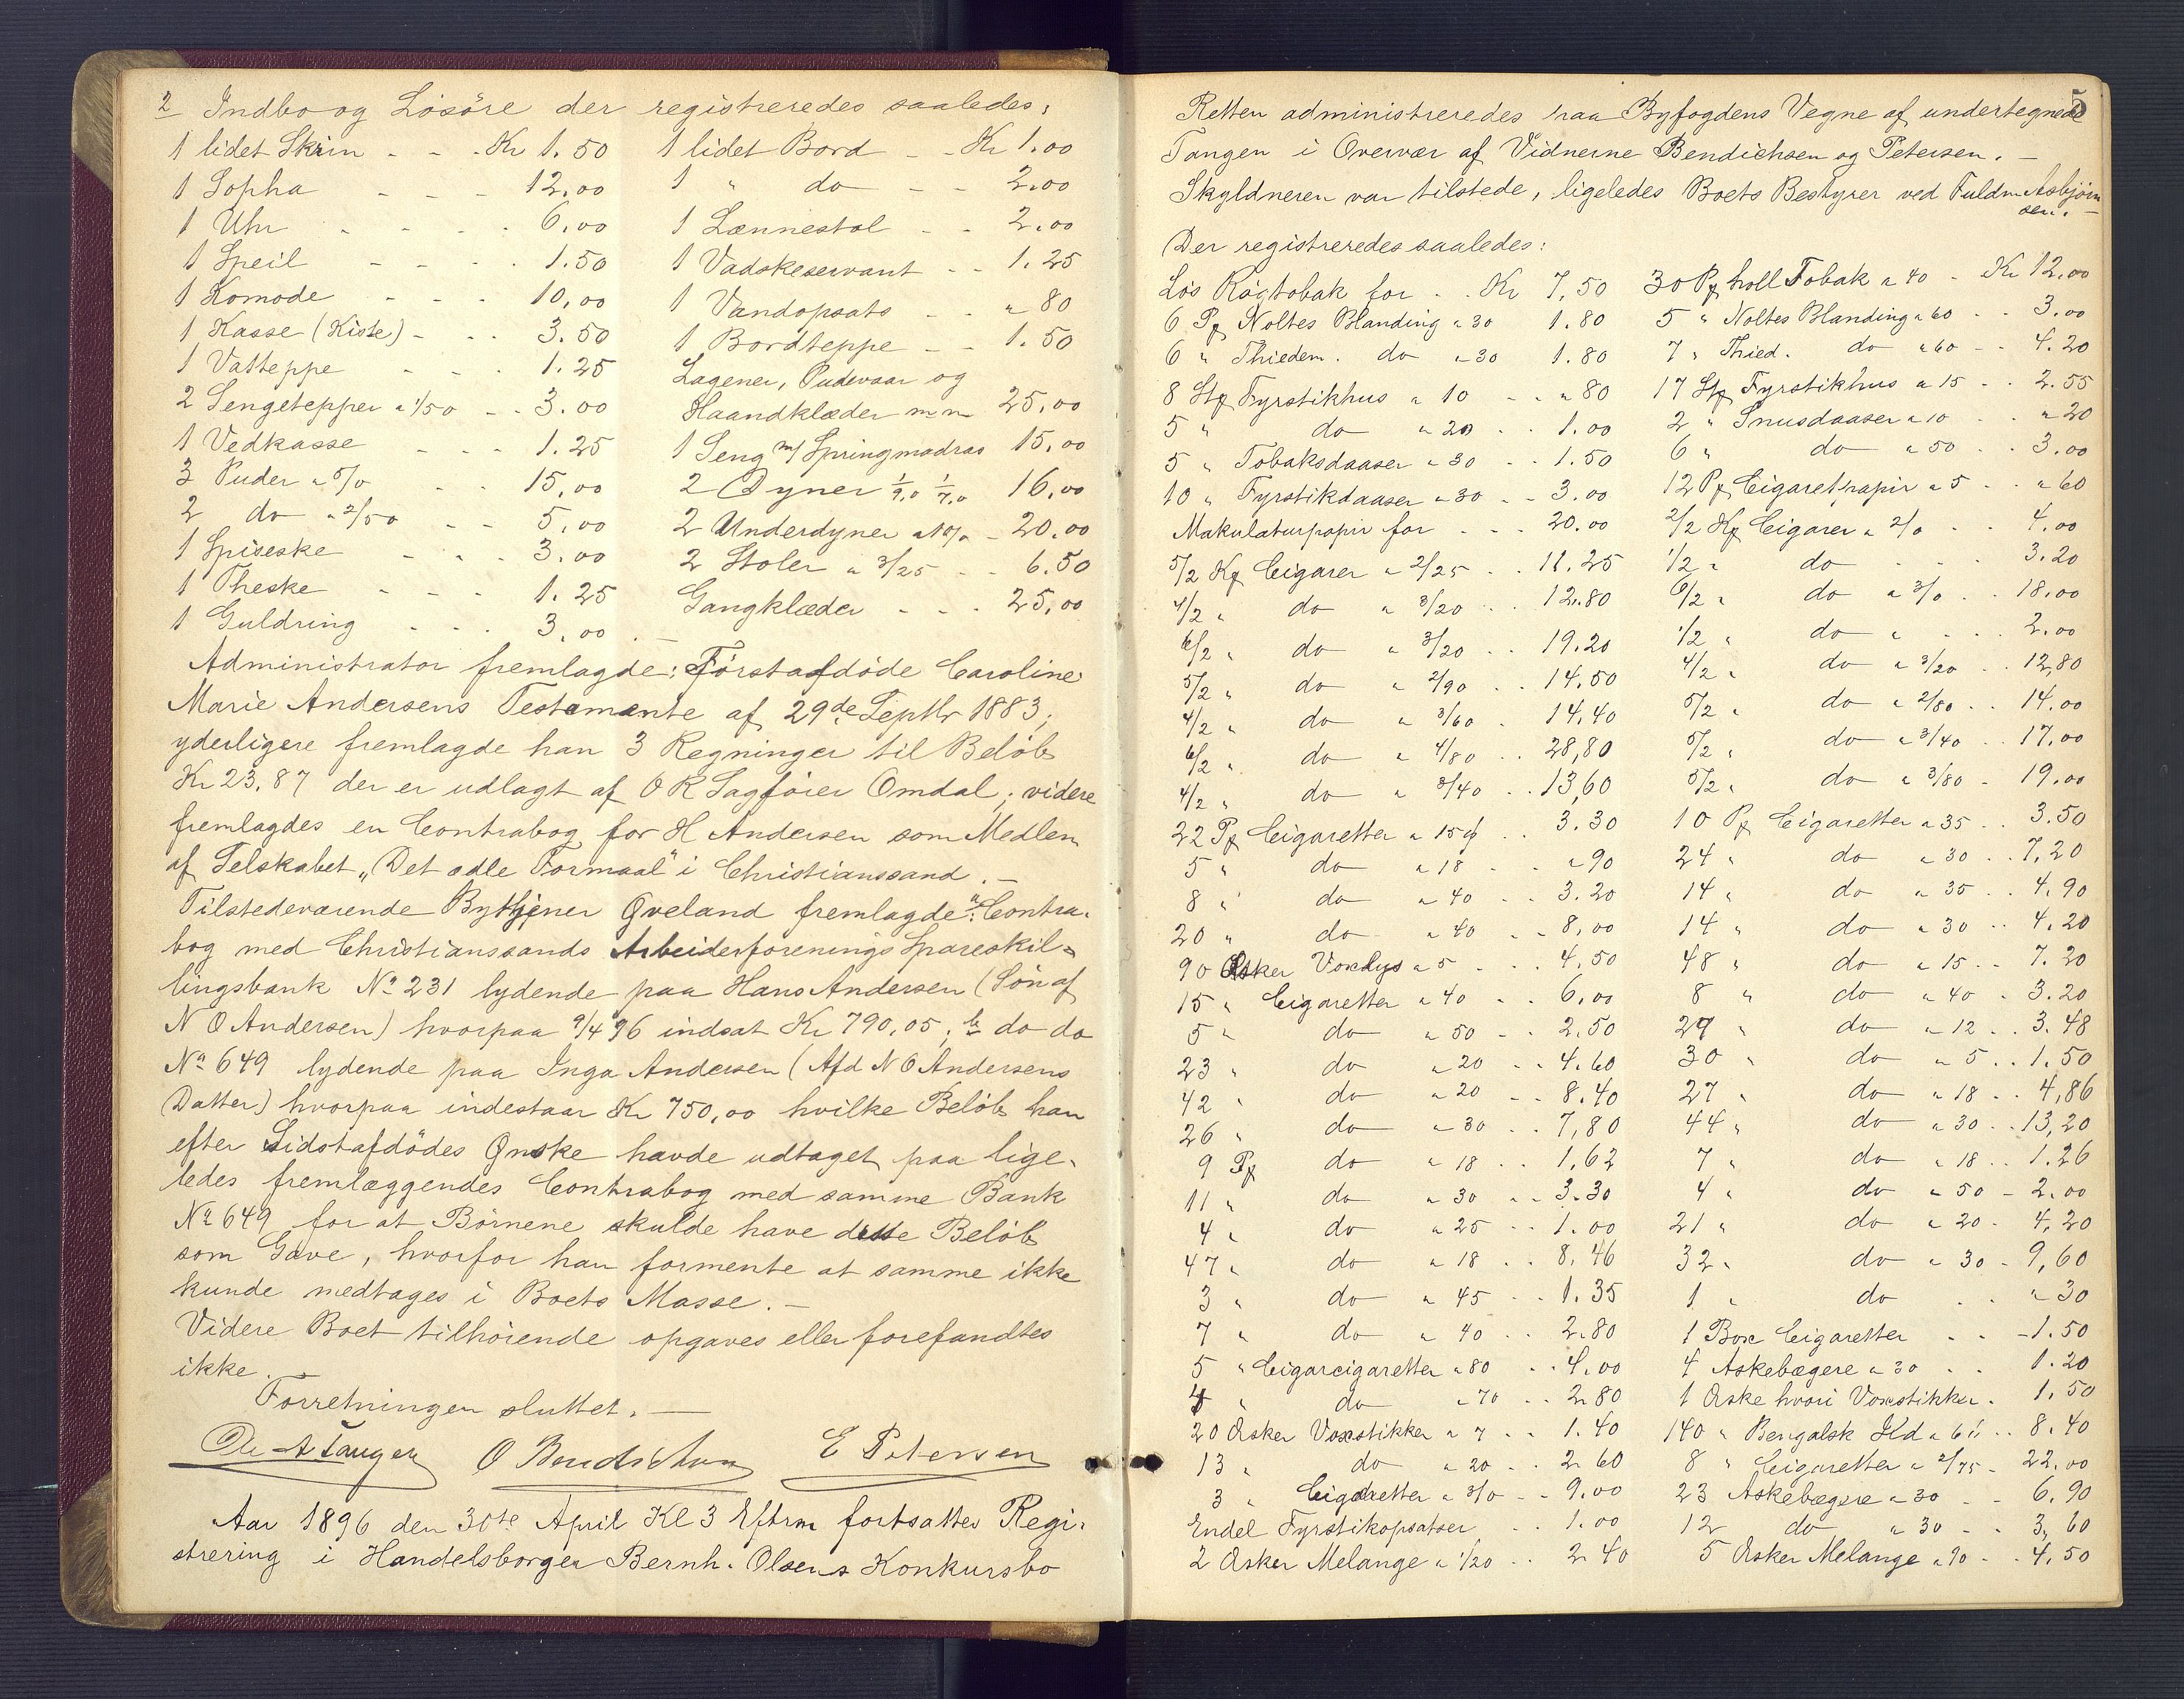 2 Indbo og Løsøre der registreredes saaledes:
1 lidet Skrin - - - Kr 1.50 1 lidet Bord - - Kr 1.00
1 Sopha - - - 12,00 1 " do - - 2.00
1 Uhr - - - - 6,00 1 Lænnestol - - 2.00
1 Speil - - - - 1.50 1 Vadskeservant - - 1.25
1 Komode - - - 10,00 1 Vandopsats - - " 80
1 Kasse (Kiste) - - - 3.50 1 Bordteppe - - 1.50
1 Vatteppe - - - 1.25 Lagener, Pudevaar og
2 Sengetepper a 1/50 - - 3.00 Haandklæder m m 25,00
1 Vedkasse - - - 1.25 1 Seng m/ Springmadras 15,00
3 Puder a 5/0 - - 15,00 2 Dyner 1/9,0 1/7,0 16,00
2 do a 2/50 - - 5,00 2 Underdyner a 10/0 - 20.00
1 Spiseske - - - 3.00 2 Stoler a 3/25 - - 6.50
1 Theske - - - 1.25 Gangklæder - - - 25,00
1 Guldring - - - 3,00.-
Administrator fremlagde: Førstafdøde Caroline
Marie Andersens Testamente af 29de Septbr 1883;
yderligere fremlagde han 3 Regninger til Beløb
Kr 23,87 der er udlagt af O R Sagfører Omdal; videre
fremlagdes en Contrabog for H Andersen som Medlem
af Selskabet "Det ædle Formaal" i Christianssand.-
Tilstedeværende Bytjener Øveland fremlagde a. Contra-
bog med Christianssands Arbeiderforenings Spareskil-
lingsbank No 231 lydende paa Hans Andersen (Søn af
N O Andersen) hvorpaa 9/4 96 indsat Kr 790,05; b do do
No 649 lydende paa Inga Andersen (Afd N O Andersens
Datter) hvorpaa indestaar Kr 750,00 hvilke Beløb han
efter Sidstafdødes Ønske havde udtaget paa lige-
ledes fremlæggendes Contrabog med samme Bank
No 649 for at Børnene skulde have dette Beløb
som Gave, hvorfor han formente at samme ikke
kunde medtages i Boets Masse.-
Videre Boet tilhørende opgaves eller forefandtes
ikke.
Forretningen sluttet.-
A Tangen O Bendichsen E Petersen
Aar 1896 den 30te April Kl 3 Eftrm fortsattes Regi-
strering i Handelsborger Bernh. Olsens Konkursbo
5
Retten administreredes paa Byfogdens Vegne af undertegnede
Tangen i Overvær af Vidnerne Bendichsen og Petersen.-
Skyldneren var tilstede, ligeledes Boets Bestyrer ved Fuldm Asbjørn
sen.-
Der registreredes saaledes:
Løs Røgtobak for - - Kr 7,50 30 Pk holl Tobak a 40 - Kr 12,00
6 Pk Noltes Blanding a 30 1.80 5 " Noltes Blanding a 60 - - 3.00
6 " Thiedem. do a 30 1.80 7 " Thied. do a 60 - - 4.20
8 Stk Fyrstikhus a 10 - - " 80 17 Stk Fyrstikhus a 15 - - 2.55
5 " do a 20 - - 1.00 2 " Snusdaaser a 10 - - " 20
5 " Tobaksdaaser a 30 - - 1.50 6 " do a 50 - - 3.00
10 " Fyrstikdaaser a 30 - - 3.00 12 Pk Cigaretpapir a 5 - - " 60
Makulaturpapir for - - - 20.00 2/2 Kg Cigarer a 2/0 - - 4.00
5/2 Kg Cigarer a 2/25 - - 11.25 1/2 " do - - - 3.20
4/2 " do a 3/20 - - 12.80 6/2 " do a 3/0 - - 18.00
6/2 " do a 3/20 - - 19.20 1/2 " do a - - - 2.00
5/2 " do a 2/90 - - 14.50 4/2 " do a 3/20 - - 12,80
4/2 " do a 3/60 - 14.40 5/2 " do a 2/80 - - 14.00
6/2 " do a 4/80 - - 28,80 5/2 " do a 3/40 - - 17.00
4/2 " do a 3/40 - - 13,60 5/2 " do a 3/80 - 19.00
22 Pk Cigaretter a 15 - - 3.30 10 Pk Cigaretter a 35 - - 3.50
5 " do a 18 - - " 90 24 " do a 30 - - 7,20
8 " do a 40 - - 3.20 14 " do a 35 - - 4.90
20 " do a 40 - - 8,00 14 " do a 30 - - 4.20
90 Æsker Voxlys a 5 - - - 4.50 48 " do a 15 - - 7.20
15 " Cigaretter a 40 - - 6,00 8 " do a 40 - 3.20
5 " do a 50 - - 2.50 29 " do a 12 - - 3.48
23 " do a 20 - - 4.60 30 " do a 5 - - 1.50
42 " do a 20 - - 8.40 27 " do a 18 - - 4,86
26 " do a 30 - - 7,80 44 " do a 30 - - 13,20
9 Pk do a 18 - - 1,62 7 " do a 18 - - 1.26
11 " do a 30 - - 3.30 4 " do a 50 - 2.00
4 " do a 25 - - 1.00 21 " do a 20 - 4.20
47 " do a 18 - - 8,46 32 " do a 30 - 9,60
3 " do a 45 - - 1.35 1 " do - - " 30
7 " do a 40 - - 2.80 1 Box Cigaretter - - - 1.50
5 " Cigarcigaretter a 80 - - 4.00 4 Askebægere a 30 - - 1.20
4 " do a 70 - - 2.80 1 Æske hvori Voxstikker - 1.50
20 Æsker Voxstikker a 7 - - 1.40 140 " Bengalsk Ild a 6 - - 8.40
13 " do a 20 - - 2.60 8 " Cigaretter a 2/75 - 22.00
3 " Cigaretter a 3/0 - - 9.00 23 Askebægere a 30 - - 6.90
Endel Fyrstikopsatser - - 1.00 12 do a 30 - - 3,60
2 Æsker Melange a 1/20 - - 2.40 5 Æsker Melange a 90 - - 4.50